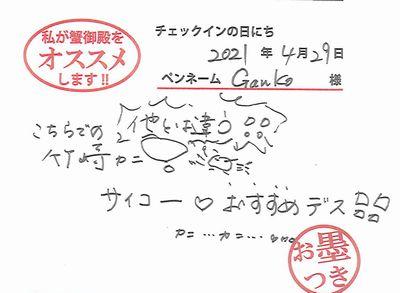 私が蟹御殿を
オススメ
します!!
チェックインの日にち
2021 年 4 月 29 日
ペンネーム Ganko 様
他とお違う
こちらでの
竹崎カニ
サイコー♡おすすめデス
カニ…カニ…
お墨
つき